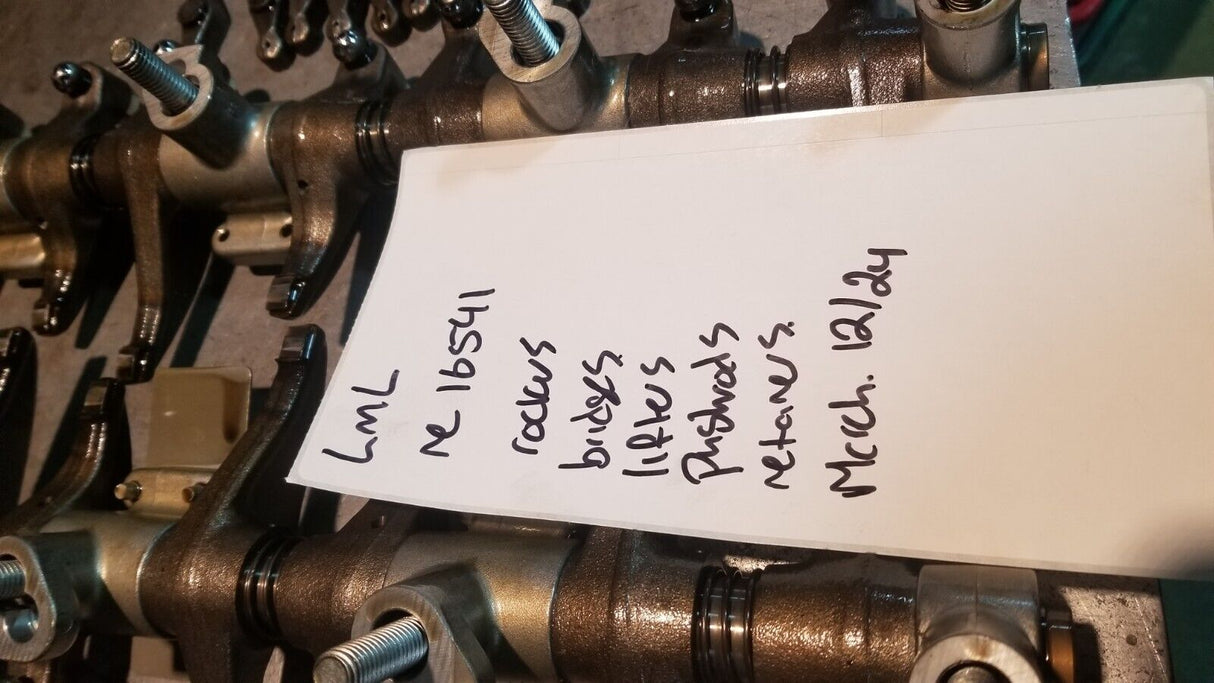 LML
re 16541
rockers
bridges
lifters
pushrods
retainers.
March. 12/24